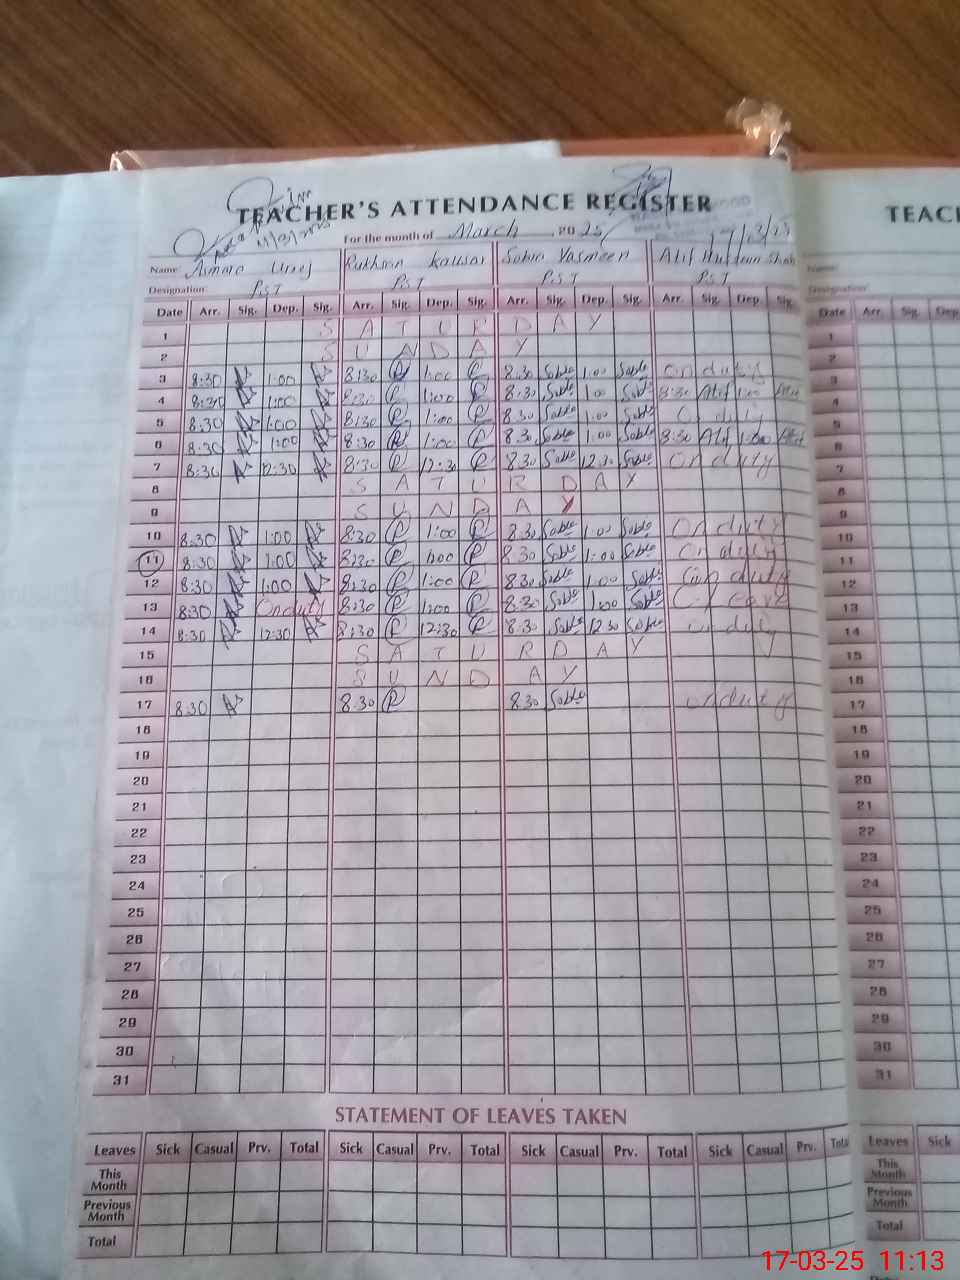 TEACHER'S ATTENDANCE REGISTER TEAC
11/3/2025 17/3/25
For the month of March 2025
Name Asmara Urooj Rukhsan Kausar Sobia Yasmeen Atif Hussain Shah Name
Designation P.S.T P.S.T P.S.T P.S.T Designation
Date Arr. Sig. Dep. Sig. Arr. Sig. Dep. Sig. Arr. Sig. Dep. Sig. Arr. Sig. Dep. Sig. Date Arr. Sig. Dep
1 S A T U R D A Y 1
2 S U N D A Y 2
3 8:30 1:00 8:30 R 1:00 R 8.30 Sobia 1.00 Sobia On duty 3
4 8:30 1:00 8:30 R 1:00 R 8.30 Sobia 1.00 Sobia 8:30 Atif 1:00 Atif 4
5 8:30 1:00 8:30 R 1:00 R 8.30 Sobia 1.00 Sobia On duty 5
6 8:30 1:00 8:30 R 1:00 R 8.30 Sobia 1.00 Sobia 8:30 Atif 1:00 Atif 6
7 8:30 12:30 8:30 R 12:30 R 8.30 Sobia 12.30 Sobia On duty 7
8 S A T U R D A Y 8
9 S U N D A Y 9
10 8:30 1:00 8:30 R 1:00 R 8.30 Sobia 1.00 Sobia On duty 10
11 8:30 1:00 8:30 R 1:00 R 8.30 Sobia 1:00 Sobia On duty 11
12 8:30 1:00 8:30 R 1:00 R 8.30 Sobia 1.00 Sobia On duty 12
13 8:30 On duty 8:30 R 1:00 R 8.30 Sobia 1:00 Sobia C-Leave 13
14 8:30 12:30 8:30 R 12:30 R 8.30 Sobia 12.30 Sobia on duty 14
15 S A T U R D A Y 15
16 S U N D A Y 16
17 8:30 8:30 R 8:30 Sobia on duty 17
18 18
19 19
20 20
21 21
22 22
23 23
24 24
25 25
26 26
27 27
28 28
29 29
30 30
31 31
STATEMENT OF LEAVES TAKEN
Leaves Sick Casual Prv. Total Sick Casual Prv. Total Sick Casual Prv. Total Sick Casual Prv. Total Leaves Sick
This Month This Month
Previous Month Previous Month
Total Total
17-03-25 11:13